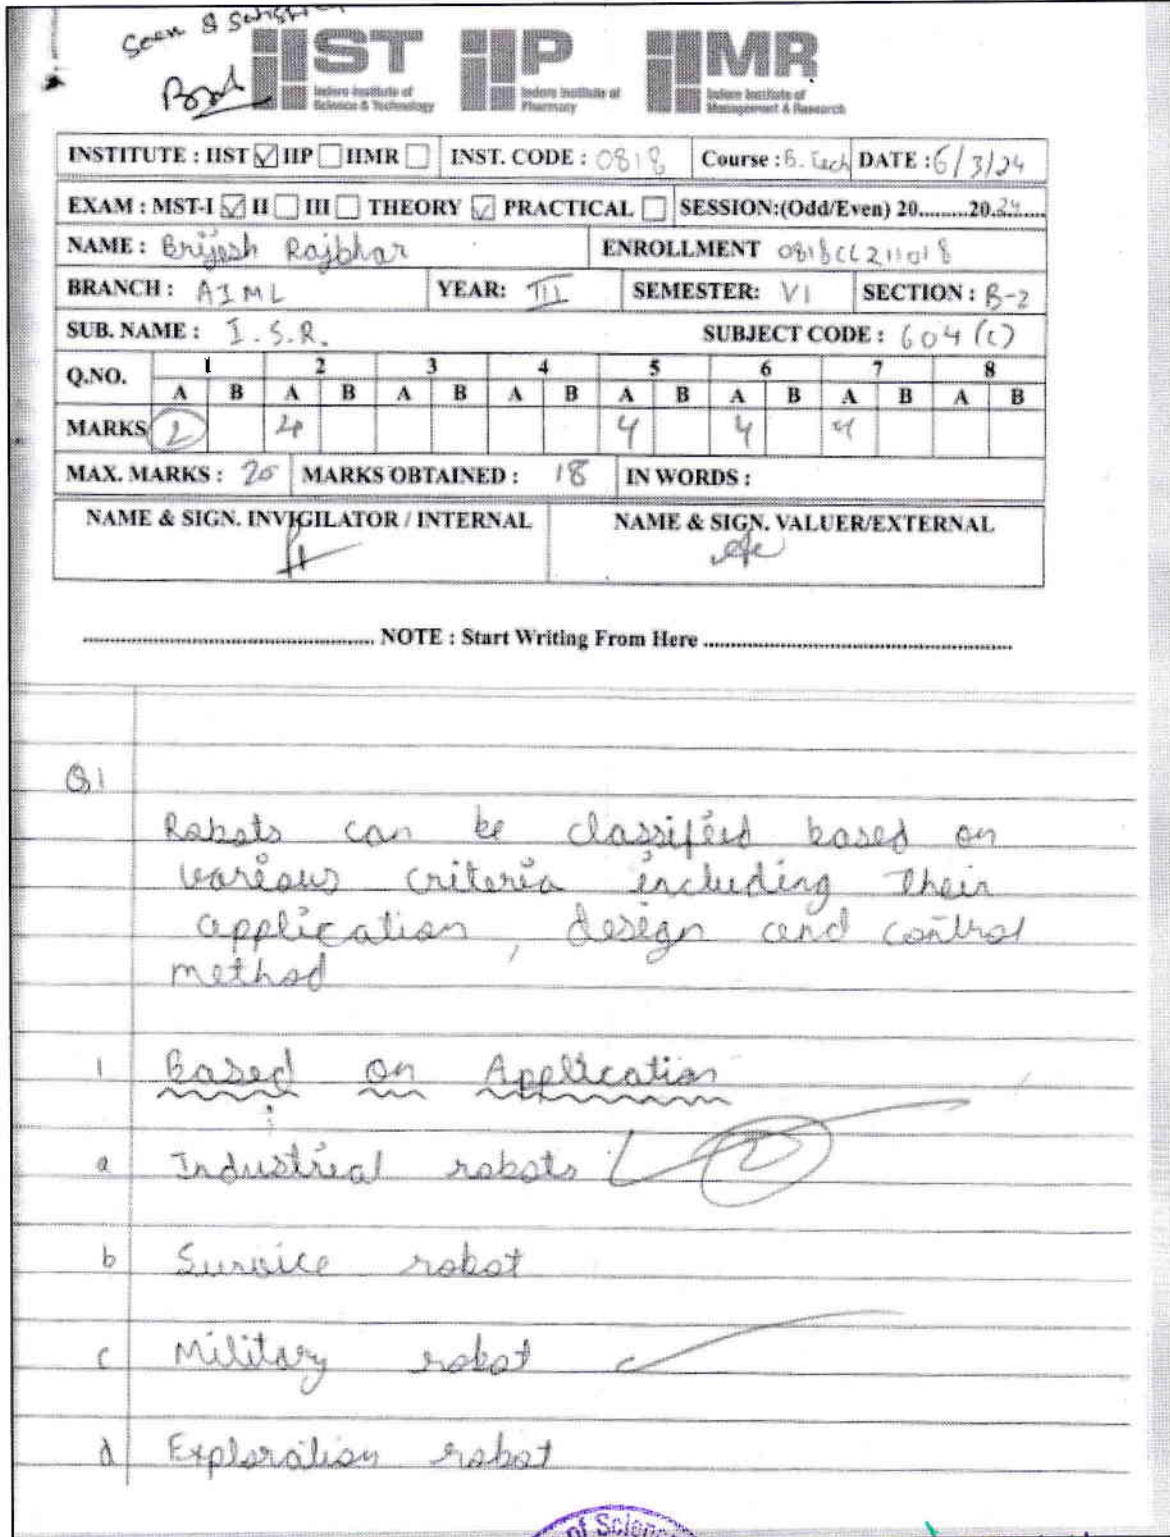 Seen & Satisfi
IIST IIP IIMR
Indore Institute of Indore Institute of Indore Institute of
Science & Technology Pharmacy Management & Research
INSTITUTE : IIST ☑ IIP ☐ IIMR ☐ INST. CODE : 0818 Course : B.Tech DATE : 6/3/24
EXAM : MST-I ☑ II ☐ III ☐ THEORY ☑ PRACTICAL ☐ SESSION:(Odd/Even) 20.........20.24......
NAME : Brijesh Rajbhar ENROLLMENT 0818CL211018
BRANCH : AIML YEAR: III SEMESTER: VI SECTION : B-2
SUB. NAME : I.S.R. SUBJECT CODE : 604 (c)
Q.NO. 1 2 3 4 5 6 7 8
A B A B A B A B A B A B A B A B
MARKS 2 4 4 4 4
MAX. MARKS : 20 MARKS OBTAINED : 18 IN WORDS :
NAME & SIGN. INVIGILATOR / INTERNAL NAME & SIGN. VALUER/EXTERNAL
NOTE : Start Writing From Here
Q1
Robots can be classified based on
various criteria including their
application, design and control
method
1 Based on Application
:
a Industrial robots 2
b Survice robot
c Military robot
d Exploration robot
of Scienc